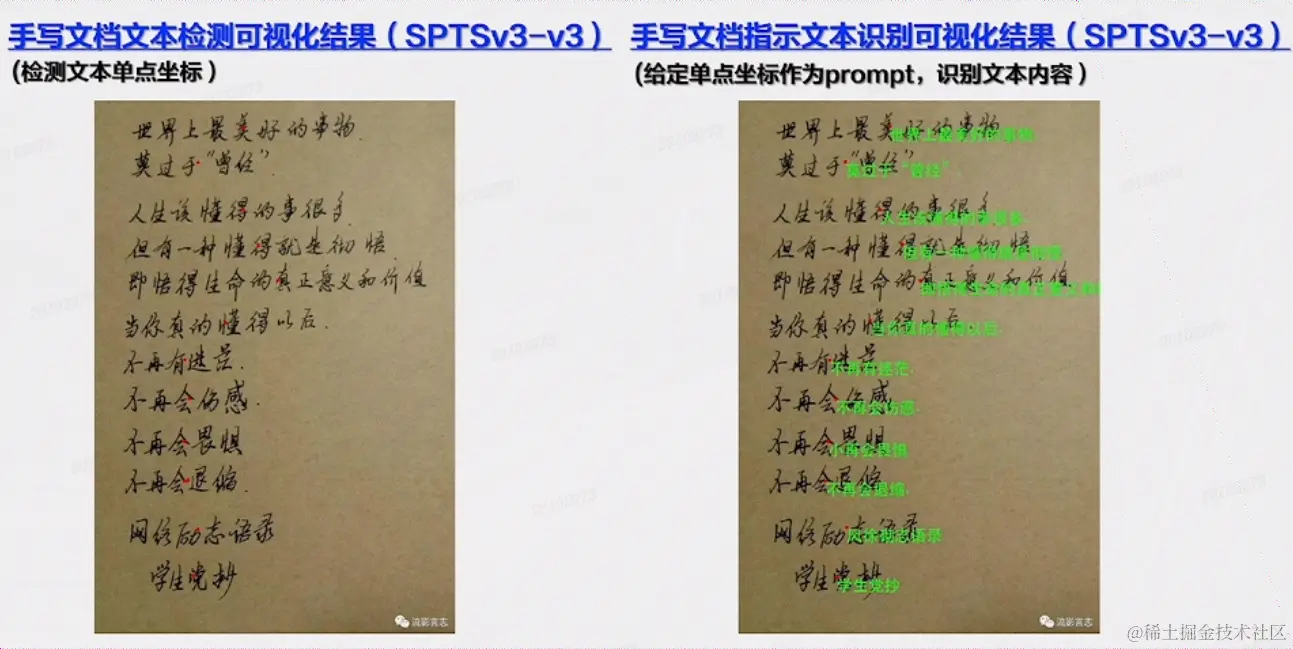 手写文档文本检测可视化结果（SPTSv3-v3）
（检测文本单点坐标）
世界上最美好的事物.
莫过于“曾经”.
人生该懂得的事很多.
但有一种懂得就是彻悟.
即悟得生命的真正意义和价值
当你真的懂得以后.
不再有迷茫.
不再会伤感.
不再会畏惧
不再会退缩.
网络励志语录
学生党抄
流影言志
手写文档指示文本识别可视化结果（SPTSv3-v3）
（给定单点坐标作为prompt，识别文本内容）
世界上最美好的事物
莫过于“曾经”.
人生该懂得的事很多
但有一种懂得就是彻悟
即悟得生命的真正意义和价值
当你真的懂得以后
不再有迷茫
不再会伤感
不再会畏惧
不再会退缩
网络励志语录
学生党抄
莫过于“曾经”.
当你真的懂得以后.
不再有迷茫.
不再会伤感.
小再会畏惧
不再会退缩.
学生党抄
流影言志
@稀土掘金技术社区